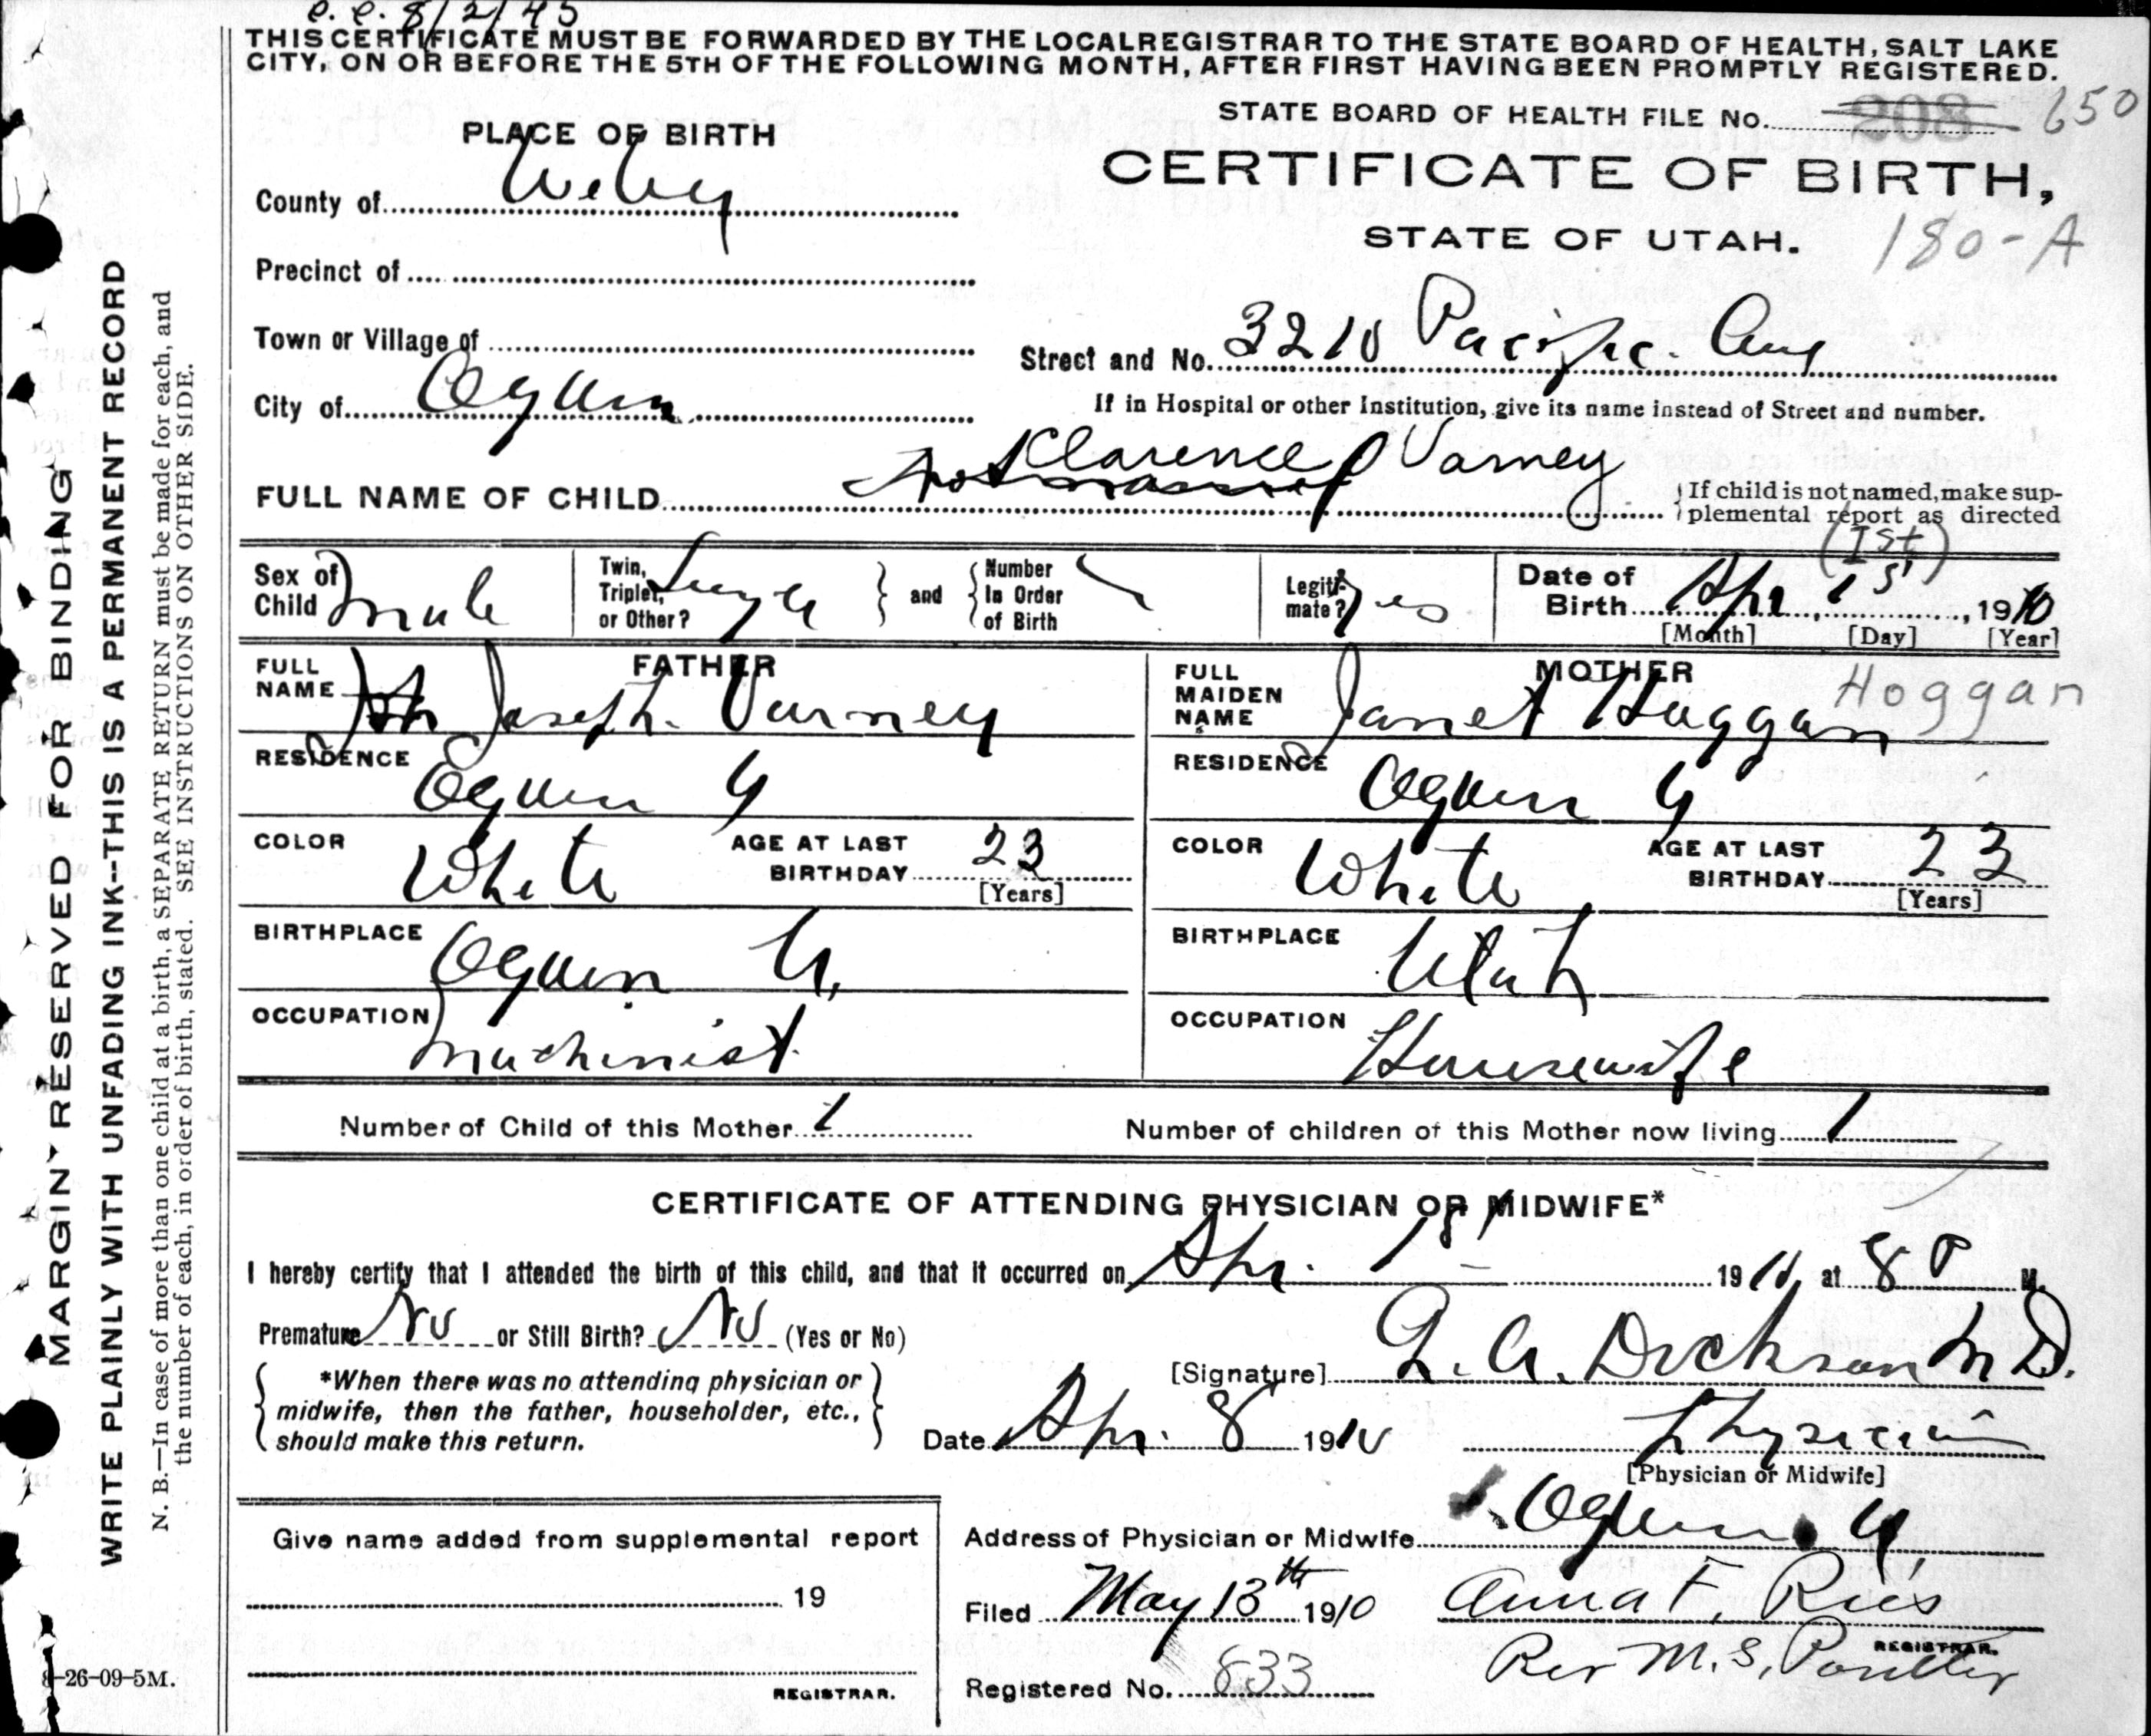 c. c. 8/2/45
THIS CERTIFICATE MUST BE FORWARDED BY THE LOCAL REGISTRAR TO THE STATE BOARD OF HEALTH, SALT LAKE
CITY, ON OR BEFORE THE 5TH OF THE FOLLOWING MONTH, AFTER FIRST HAVING BEEN PROMPTLY REGISTERED.
STATE BOARD OF HEALTH FILE No. 208 650
PLACE OF BIRTH
CERTIFICATE OF BIRTH,
County of Weber
STATE OF UTAH. 180-A
Precinct of
Town or Village of
Street and No. 3210 Pacific Ave
City of Ogden
If in Hospital or other Institution, give its name instead of Street and number.
FULL NAME OF CHILD Not named Clarence J Varney
If child is not named, make sup-
plemental report as directed
(Ist)
Sex of Child Male
Twin, Triplet, or Other? Single
and Number In Order of Birth
Legiti-mate? yes
Date of Birth Apr 1st, 1910
[Month] [Day] [Year]
FATHER
FULL NAME Joseph Varney
RESIDENCE Ogden U
COLOR White
AGE AT LAST BIRTHDAY 23
[Years]
BIRTHPLACE Ogden U.
OCCUPATION Machinist
MOTHER
FULL MAIDEN NAME Janet Huggan Hoggan
RESIDENCE Ogden U
COLOR White
AGE AT LAST BIRTHDAY 23
[Years]
BIRTHPLACE Utah
OCCUPATION Housewife
Number of Child of this Mother 1
Number of children of this Mother now living 1
CERTIFICATE OF ATTENDING PHYSICIAN OR MIDWIFE*
I hereby certify that I attended the birth of this child, and that it occurred on Apr. 1st 1910, at 8 P M.
Premature No or Still Birth? No (Yes or No)
[Signature] L. A. Dickson M D.
*When there was no attending physician or
midwife, then the father, householder, etc.,
should make this return.
Date Apr. 8 1910
Physician
[Physician or Midwife]
Address of Physician or Midwife Ogden U,
Give name added from supplemental report
19
REGISTRAR.
Filed May 13th 1910
Anna F. Ries
REGISTRAR.
Per M. S. Poulter
Registered No. 833
MARGIN RESERVED FOR BINDING
WRITE PLAINLY WITH UNFADING INK--THIS IS A PERMANENT RECORD
N. B.—In case of more than one child at a birth, a SEPARATE RETURN must be made for each, and
the number of each, in order of birth, stated. SEE INSTRUCTIONS ON OTHER SIDE.
8-26-09-5M.